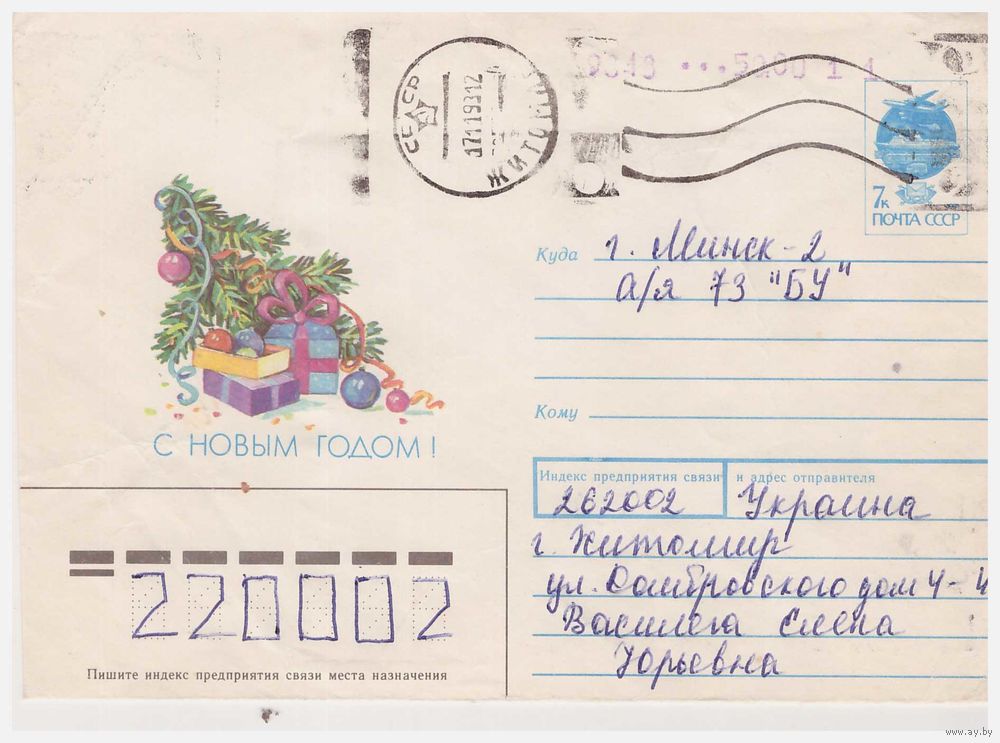 9848 ...5000 1 1
ЖИТОМИР
7к
ПОЧТА СССР
Куда г. Минск-2
а/я 73 "БУ"
Кому
С НОВЫМ ГОДОМ!
Индекс предприятия связи и адрес отправителя
262002 Украина
г. Житомир
ул. Домбровского дом 4-4
Василега Елена
Юрьевна
220002
Пишите индекс предприятия связи места назначения
www.ay.by